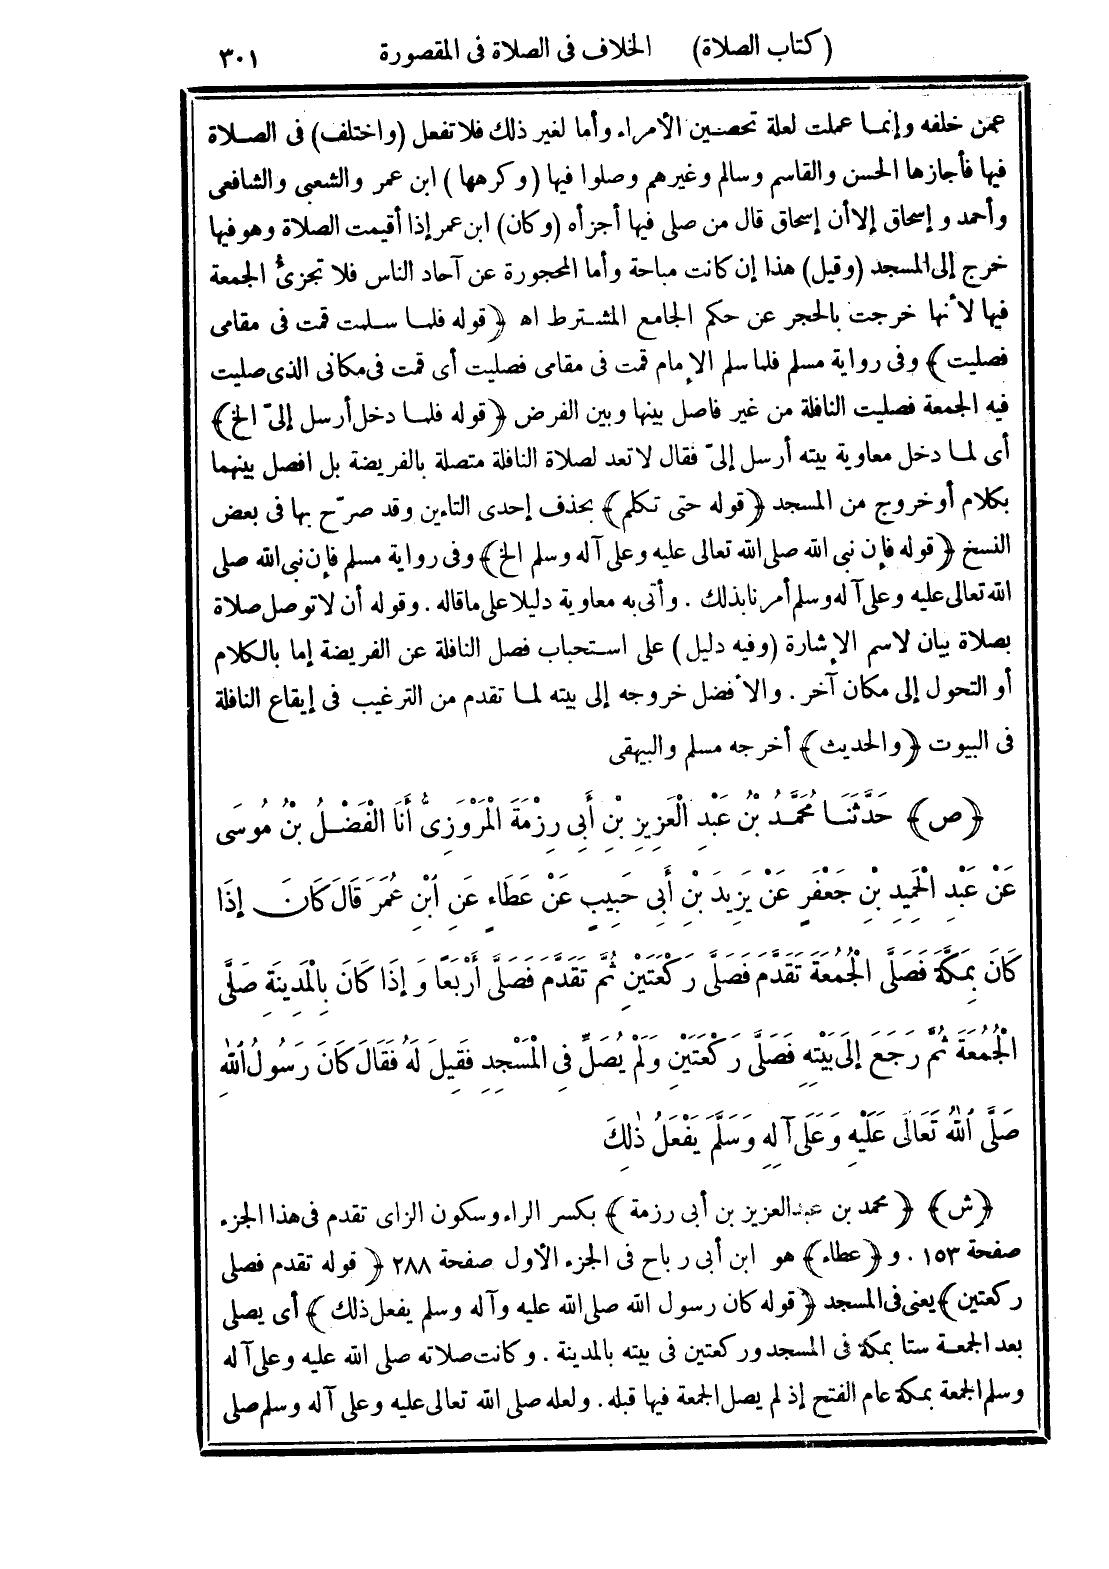 (كتاب الصلاة) الخلاف فى الصلاة فى المقصورة ٣٠١
عمن خلفه وإنما عملت لعلة تحصين الأمراء وأما لغير ذلك فلا تفعل (واختلف) فى الصلاة
فيها فأجازها الحسن والقاسم وسالم وغيرهم وصلوا فيها (وكرهها) ابن عمر والشعبى والشافعى
وأحمد وإسحاق إلا أن إسحاق قال من صلى فيها أجزأه (وكان) ابن عمر إذا أقيمت الصلاة وهو فيها
خرج إلى المسجد (وقيل) هذا إن كانت مباحة وأما المحجورة عن آحاد الناس فلا تجزئ الجمعة
فيها لأنها خرجت بالحجر عن حكم الجامع المشترط اه ﴿قوله فلما سلمت قمت فى مقامى
فصليت﴾ وفى رواية مسلم فلما سلم الإمام قمت فى مقامى فصليت أى قمت فى مكانى الذى صليت
فيه الجمعة فصليت النافلة من غير فاصل بينها وبين الفرض ﴿قوله فلما دخل أرسل إلىّ الخ﴾
أى لما دخل معاوية بيته أرسل إلىّ فقال لا تعد لصلاة النافلة متصلة بالفريضة بل افصل بينهما
بكلام أو خروج من المسجد ﴿قوله حتى تكلم﴾ بحذف إحدى التاءين وقد صرّح بها فى بعض
النسخ ﴿قوله فإن نبى الله صلى الله تعالى عليه وعلى آله وسلم الخ﴾ وفى رواية مسلم فإن نبى الله صلى
الله تعالى عليه وعلى آله وسلم أمرنا بذلك . وأتى به معاوية دليلا على ما قاله . وقوله أن لا توصل صلاة
بصلاة بيان لاسم الإشارة (وفيه دليل) على استحباب فصل النافلة عن الفريضة إما بالكلام
أو التحول إلى مكان آخر . والأفضل خروجه إلى بيته لما تقدم من الترغيب فى إيقاع النافلة
فى البيوت ﴿والحديث﴾ أخرجه مسلم والبيهقى
﴿ص﴾ حَدَّثَنَا مُحَمَّدُ بْنُ عَبْدِ الْعَزِيزِ بْنِ أَبِى رِزْمَةَ الْمَرْوَزِىُّ أَنَا الْفَضْلُ بْنُ مُوسَى
عَنْ عَبْدِ الْحَمِيدِ بْنِ جَعْفَرٍ عَنْ يَزِيدَ بْنِ أَبِى حَبِيبٍ عَنْ عَطَاءٍ عَنِ ابْنِ عُمَرَ قَالَ كَانَ إِذَا
كَانَ بِمَكَّةَ فَصَلَّى الْجُمُعَةَ تَقَدَّمَ فَصَلَّى رَكْعَتَيْنِ ثُمَّ تَقَدَّمَ فَصَلَّى أَرْبَعًا وَإِذَا كَانَ بِالْمَدِينَةِ صَلَّى
الْجُمُعَةَ ثُمَّ رَجَعَ إِلَى بَيْتِهِ فَصَلَّى رَكْعَتَيْنِ وَلَمْ يُصَلِّ فِى الْمَسْجِدِ فَقِيلَ لَهُ فَقَالَ كَانَ رَسُولُ اللهِ
صَلَّى اللهُ تَعَالَى عَلَيْهِ وَعَلَى آلِهِ وَسَلَّمَ يَفْعَلُ ذٰلِكَ
﴿ش﴾ ﴿محمد بن عبد العزيز بن أبى رزمة﴾ بكسر الراء وسكون الزاى تقدم فى هذا الجزء
صفحة ١٥٣ . و﴿عطاء﴾ هو ابن أبى رباح فى الجزء الأول صفحة ٢٨٨ ﴿قوله تقدم فصلى
ركعتين﴾ يعنى فى المسجد ﴿قوله كان رسول الله صلى الله عليه وآله وسلم يفعل ذلك﴾ أى يصلى
بعد الجمعة ستا بمكة فى المسجد وركعتين فى بيته بالمدينة . وكانت صلاته صلى الله عليه وعلى آله
وسلم الجمعة بمكة عام الفتح إذ لم يصل الجمعة فيها قبله . ولعله صلى الله تعالى عليه وعلى آله وسلم صلى